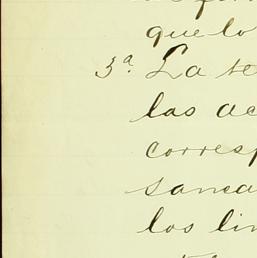 que lo
3ª. La te
las ac
corresp
sanea
los lin